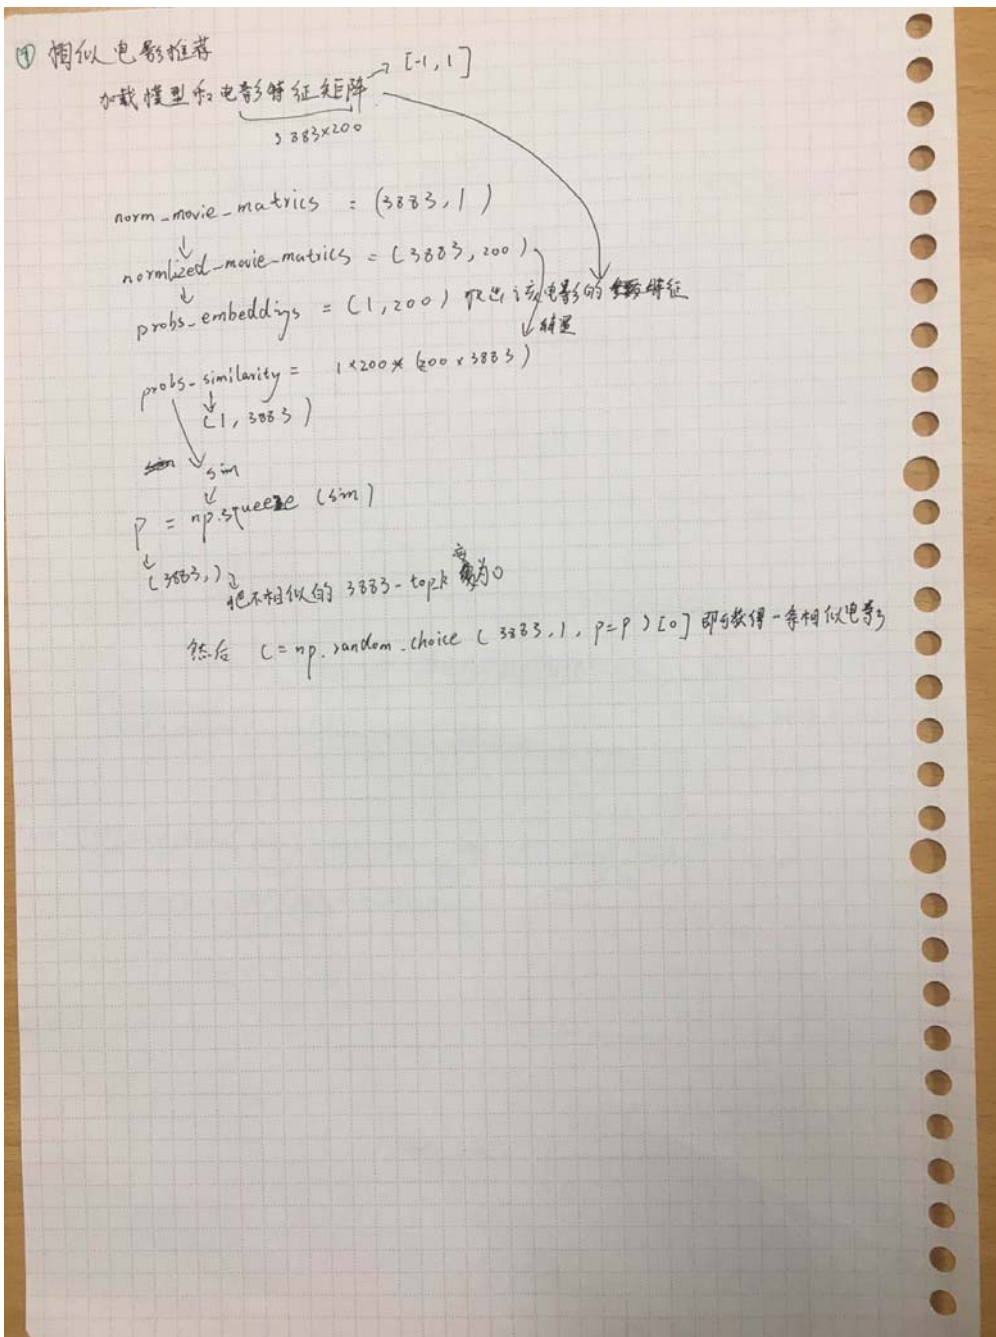 ① 相似电影推荐
加载模型和电影特征矩阵 → [-1,1]
3883×200
norm_movie_matrics = (3883, 1)
normlized_movie_matrics = (3883, 200)
probs_embeddings = (1, 200) 取出该电影的 特征
转置
probs_similarity = 1×200 * (200×3883)
(1, 3883)
sim
p = np.squeeze (sim)
(3883,)
把不相似的 3883-top_k 变为0
然后 c = np.random.choice (3883, 1, p=p)[0] 即可获得一条相似电影